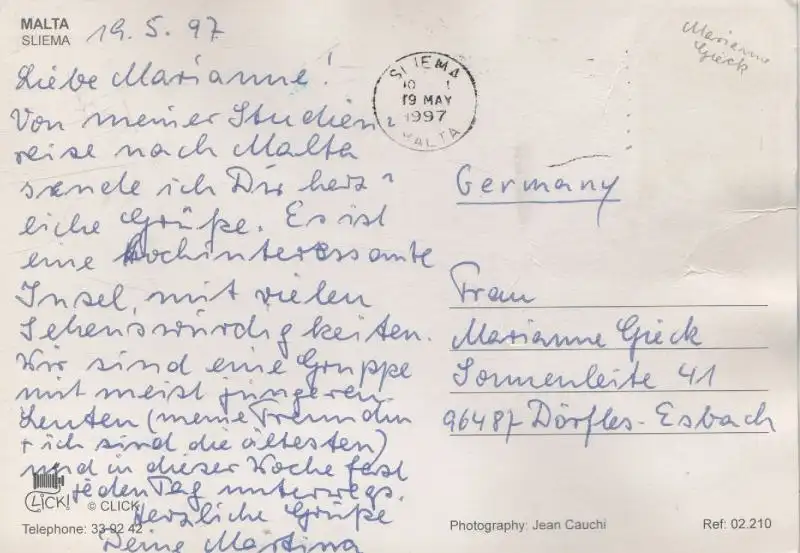 MALTA
SLIEMA
19. 5. 97
Liebe Marianne!
Von meiner Studien-
reise nach Malta
sende ich Dir herz-
liche Grüße. Es ist
eine hochinteressante
Insel, mit vielen
Sehenswürdigkeiten.
Wir sind eine Gruppe
mit meist jüngeren
Leuten (meine Freundin
+ ich sind die ältesten)
und in dieser Woche fast
jeden Tag unterwegs.
Herzliche Grüße
Deine Martina
CLICK!
© CLICK
Telephone: 33 02 42
SLIEMA
19 MAY
1997
MALTA
Marianne
Gieck
Germany
Frau
Marianne Gieck
Sonnenleite 41
96487 Dörfles-Esbach
Photography: Jean Cauchi
Ref: 02.210